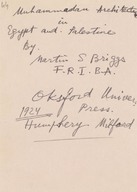 64
Muhammadan Architecture
in
Egypt and Palestine
By.
Martin S. Briggs
F.R.I.B.A.
Oksford Univer.
1924 Press.
Humphery Milford